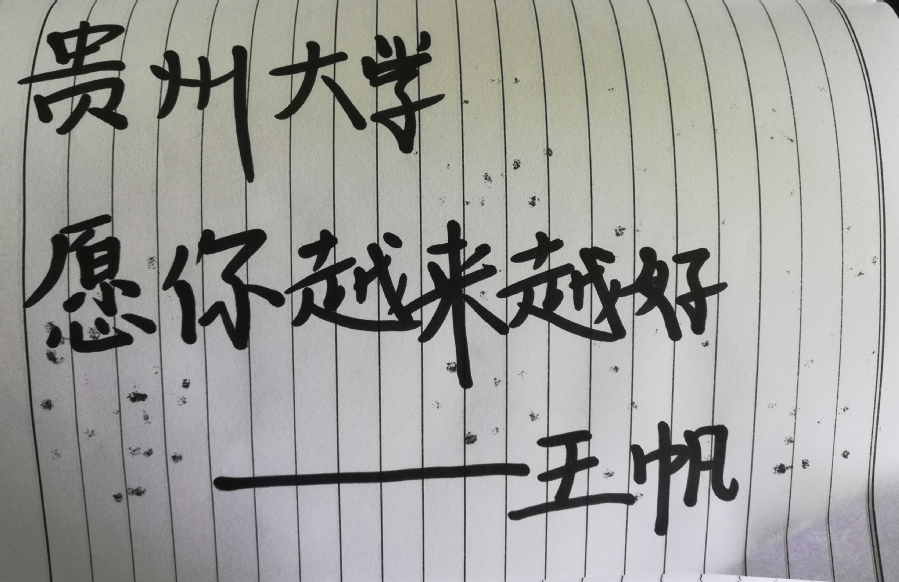 贵州大学
愿你越来越好
——王帆